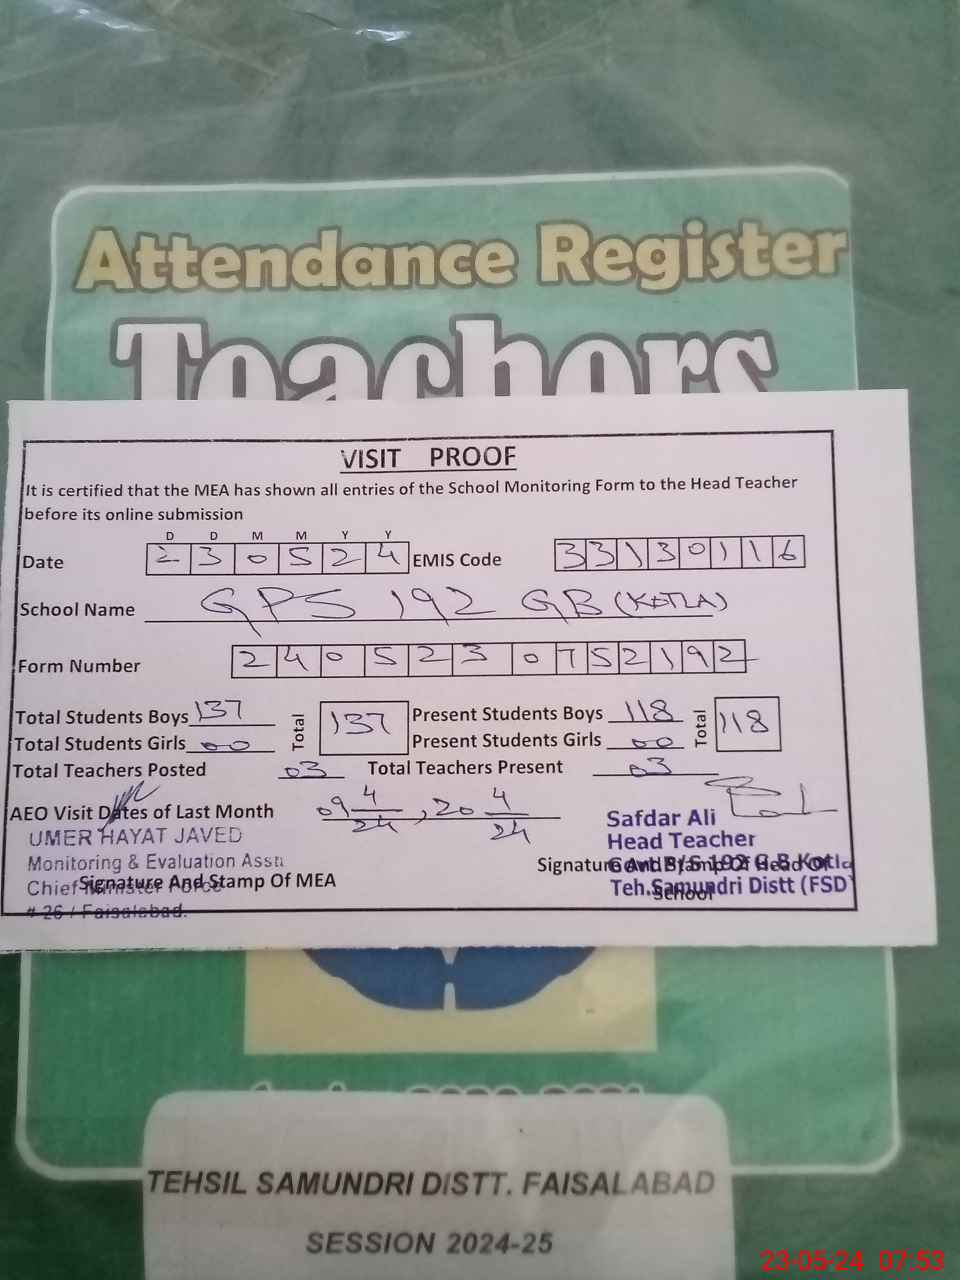 Attendance Register
Teachers
VISIT PROOF
It is certified that the MEA has shown all entries of the School Monitoring Form to the Head Teacher
before its online submission
D D M M Y Y
Date 2 3 0 5 2 4 EMIS Code 3 3 1 3 0 1 1 6
School Name GPS 192 GB (KOTLA)
Form Number 2 4 0 5 2 3 0 7 5 2 1 9 2
Total Students Boys 137 Total 137 Present Students Boys 118 Total 118
Total Students Girls 00 Present Students Girls 00
Total Teachers Posted 03 Total Teachers Present 03
AEO Visit Dates of Last Month 09 4/24, 20 4/24
UMER HAYAT JAVED
Monitoring & Evaluation Asstt
Chief Minister Force
# 26 / Faisalabad.
Signature And Stamp Of MEA
Safdar Ali
Head Teacher
Govt. P/S 192 G.B Kotla
Teh.Samundri Distt (FSD)
Signature And Stamp Of Head Of
School
TEHSIL SAMUNDRI DISTT. FAISALABAD
SESSION 2024-25
23-05-24 07:53